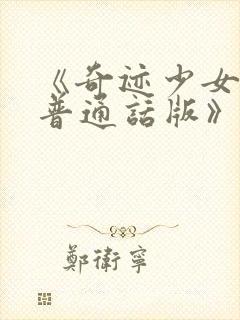 《奇迹少女
普通話版》
鄭衛寧